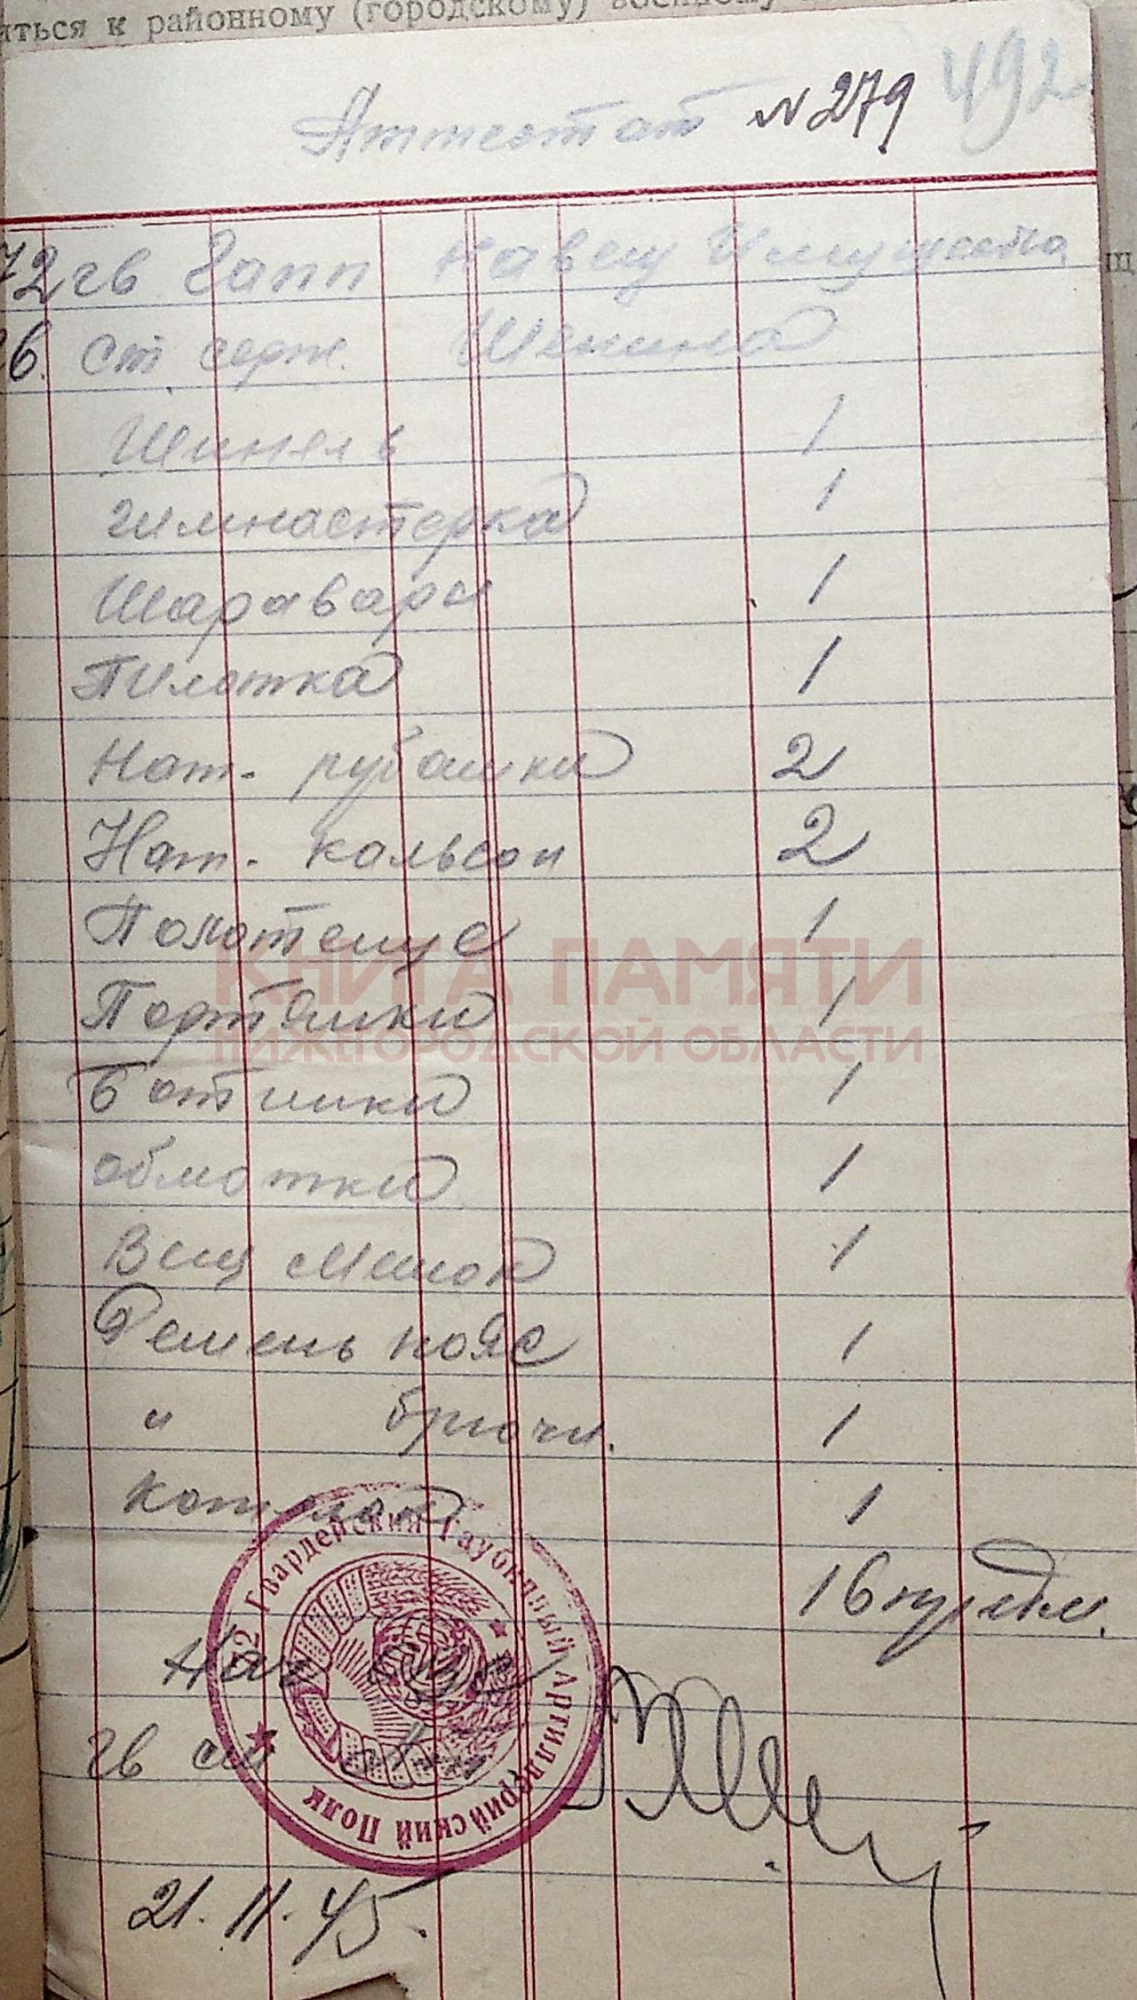 яться к районному (городскому) военному
Аттестат N279 492
72 гв Гапп На вещ Имущества
гв. Ст. серж. Шенина
Шинель 1
гимнастерка 1
Шаравары 1
Пилотка 1
Нат. рубашки 2
Нат. кальсон 2
Полотенце 1
Портянки 1
Ботинки 1
обмотки 1
Вещ мешок 1
Ремень пояс 1
" брючн. 1
Котелок 1
16 предм.
Нач
гв ст
21.11.45.
КНИГА ПАМЯТИ
НИЖЕГОРОДСКОЙ ОБЛАСТИ
72 Гвардейский Гаубичный Артиллерийский Полк